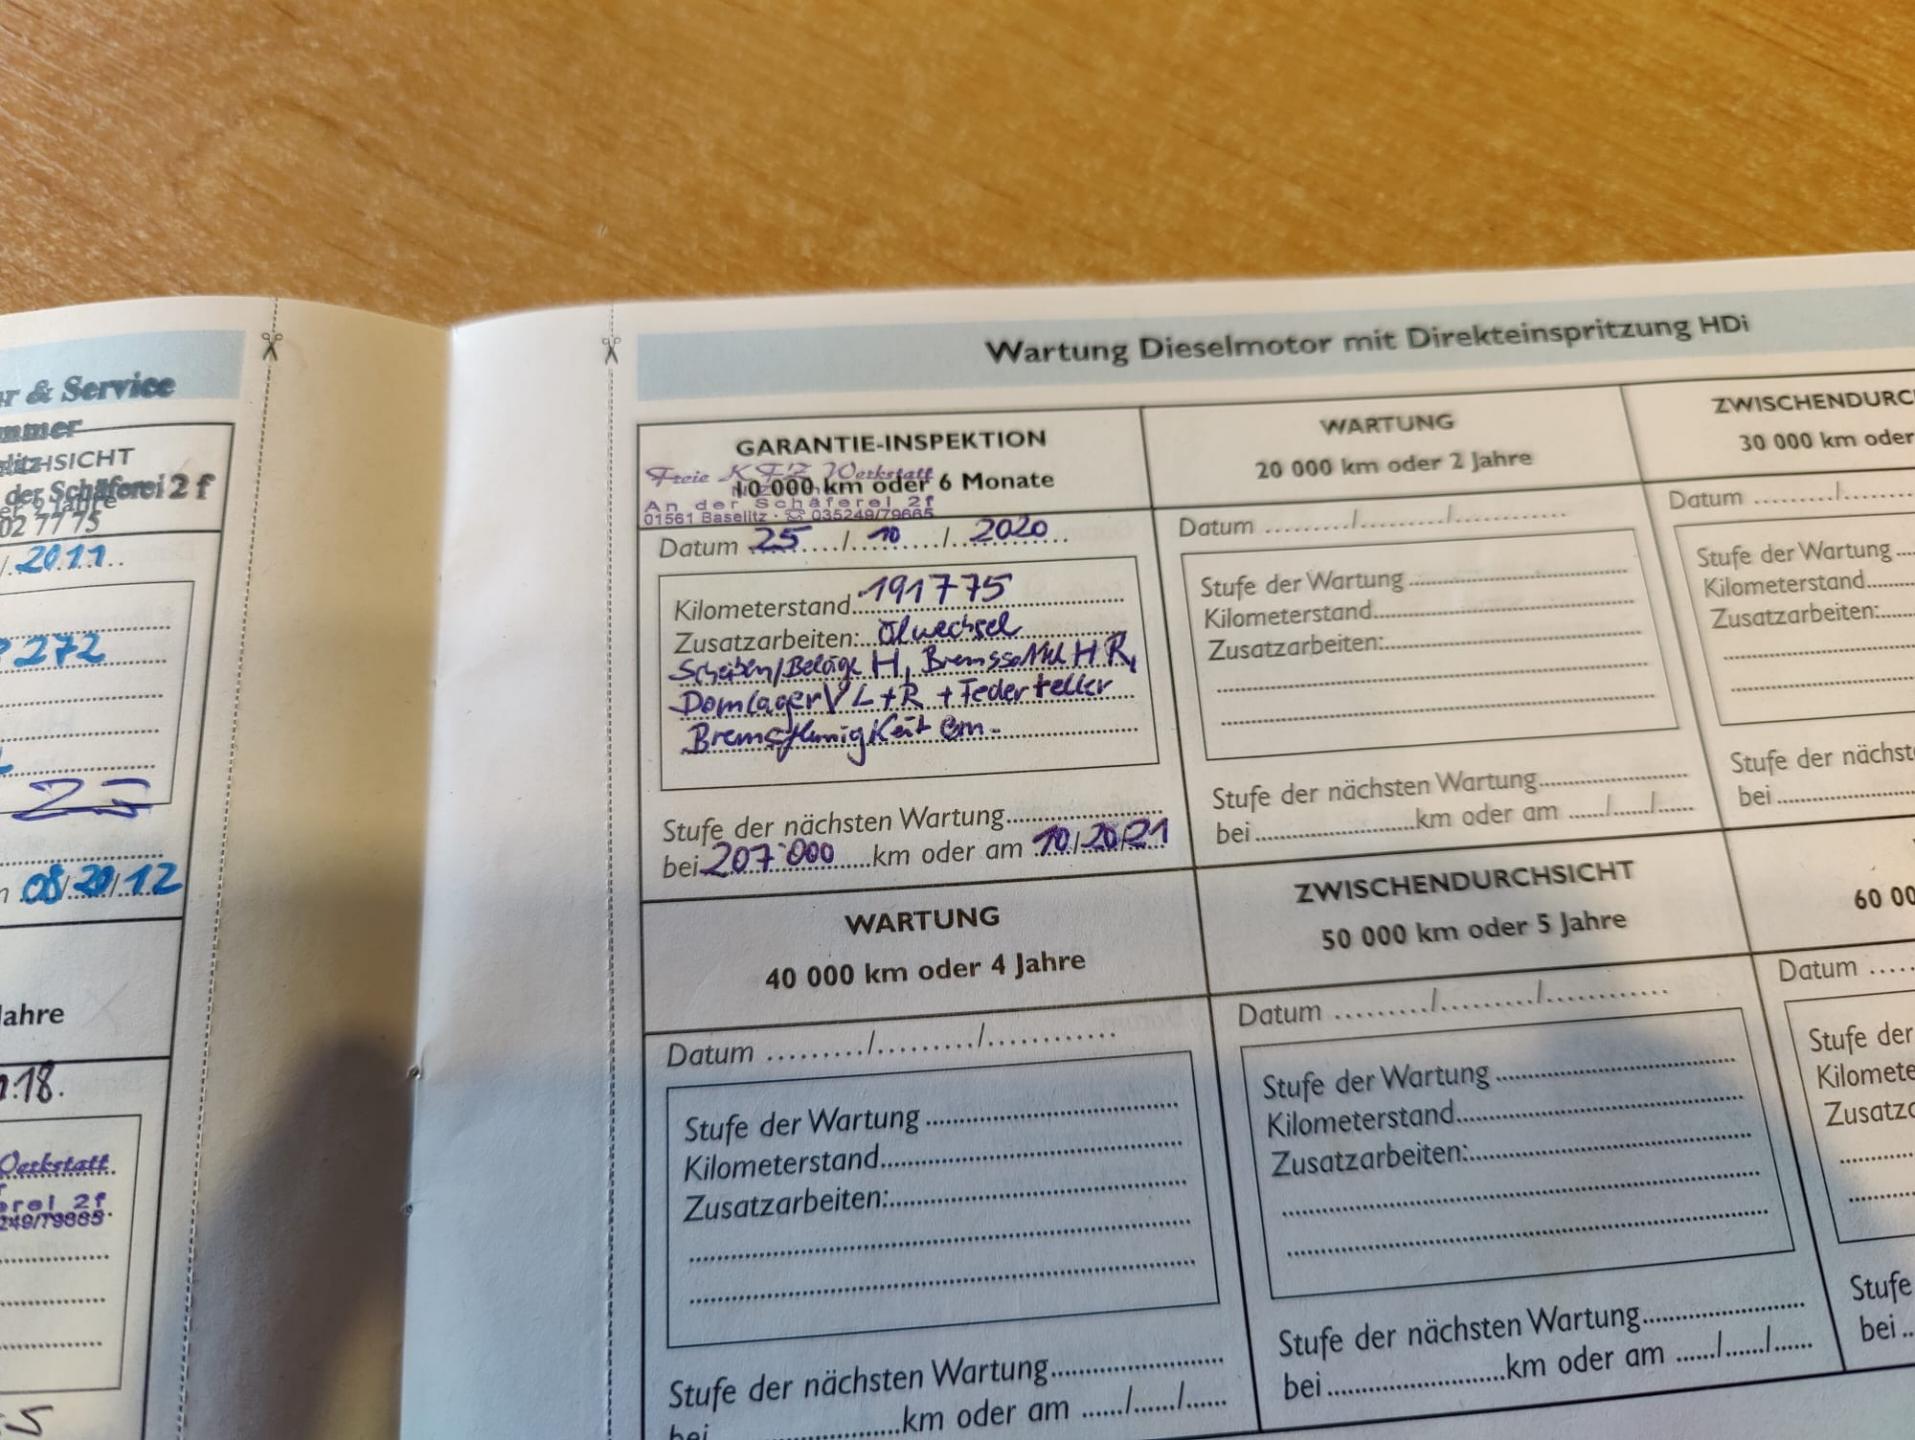 r & Service
mmer
HSICHT
der Schäferei 2 f
02 77 75
20.11
272
08/20/12
Jahre
.18.
Werkstatt
erei 2f
249/79665
Wartung Dieselmotor mit Direkteinspritzung HDi
GARANTIE-INSPEKTION
Freie KFZ Werkstatt
10 000 km oder 6 Monate
An der Schäferei 2f
01561 Baselitz · ☏ 035249/79665
Datum 25 / 10 / 2020
Kilometerstand 191775
Zusatzarbeiten: Ölwechsel
Scheiben/Beläge H, Bremssattel HR,
Domlager V L+R + Federteller
Bremsflüssigkeit ern.
Stufe der nächsten Wartung
bei 207 000 km oder am 10/20/21
WARTUNG
20 000 km oder 2 Jahre
Datum / /
Stufe der Wartung
Kilometerstand
Zusatzarbeiten:
Stufe der nächsten Wartung
bei km oder am / /
ZWISCHENDURC
30 000 km oder
Datum /
Stufe der Wartung
Kilometerstand
Zusatzarbeiten:
Stufe der nächst
bei
WARTUNG
40 000 km oder 4 Jahre
Datum / /
Stufe der Wartung
Kilometerstand
Zusatzarbeiten:
Stufe der nächsten Wartung
bei km oder am / /
ZWISCHENDURCHSICHT
50 000 km oder 5 Jahre
Datum / /
Stufe der Wartung
Kilometerstand
Zusatzarbeiten:
Stufe der nächsten Wartung
bei km oder am / /
60 00
Datum
Stufe der
Kilomete
Zusatza
Stufe
bei